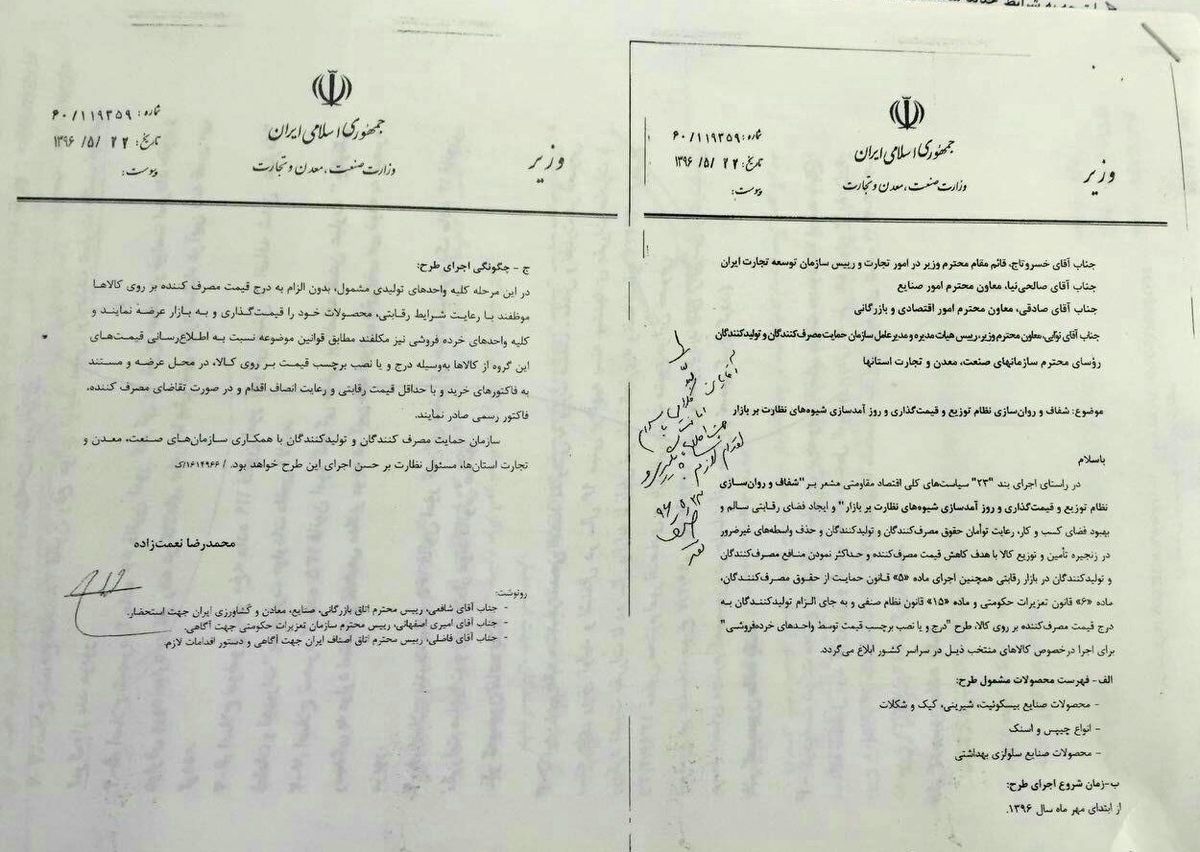 جمهوری اسلامی ایران
وزارت صنعت، معدن و تجارت
وزیر
شماره: ۶۰/۱۱۹۳۵۹
تاریخ: ۱۳۹۶/۵/۲۲
پیوست:
جناب آقای خسروتاج، قائم مقام محترم وزیر در امور تجارت و رییس سازمان توسعه تجارت ایران
جناب آقای صالحی‌نیا، معاون محترم امور صنایع
جناب آقای صادقی، معاون محترم امور اقتصادی و بازرگانی
جناب آقای نوابی، معاون محترم وزیر، رییس هیات مدیره و مدیرعامل سازمان حمایت مصرف‌کنندگان و تولیدکنندگان
رؤسای محترم سازمانهای صنعت، معدن و تجارت استانها
موضوع: شفاف و روان‌سازی نظام توزیع و قیمت‌گذاری و روز آمدسازی شیوه‌های نظارت بر بازار
باسلام
در راستای اجرای بند "۲۳" سیاست‌های کلی اقتصاد مقاومتی مشعر بر "شفاف و روان‌سازی
نظام توزیع و قیمت‌گذاری و روز آمدسازی شیوه‌های نظارت بر بازار" و ایجاد فضای رقابتی سالم و
بهبود فضای کسب و کار، رعایت توأمان حقوق مصرف‌کنندگان و تولیدکنندگان و حذف واسطه‌های غیرضرور
در زنجیره تأمین و توزیع کالا با هدف کاهش قیمت مصرف‌کننده و حداکثر نمودن منافع مصرف‌کنندگان
و تولیدکنندگان در بازار رقابتی همچنین اجرای ماده «۵» قانون حمایت از حقوق مصرف‌کنندگان،
ماده «۶» قانون تعزیرات حکومتی و ماده «۱۵» قانون نظام صنفی و به جای الزام تولیدکنندگان به
درج قیمت مصرف‌کننده بر روی کالا، طرح "درج و یا نصب برچسب قیمت توسط واحدهای خرده‌فروشی"
برای اجرا درخصوص کالاهای منتخب ذیل در سراسر کشور ابلاغ می‌گردد.
الف- فهرست محصولات مشمول طرح:
- محصولات صنایع بیسکوئیت، شیرینی، کیک و شکلات
- انواع چیپس و اسنک
- محصولات صنایع سلولزی بهداشتی
ب-زمان شروع اجرای طرح:
از ابتدای مهر ماه سال ۱۳۹۶.
جمهوری اسلامی ایران
وزارت صنعت، معدن و تجارت
وزیر
شماره: ۶۰/۱۱۹۳۵۹
تاریخ: ۱۳۹۶/۵/۲۲
پیوست:
ج - چگونگی اجرای طرح:
در این مرحله کلیه واحدهای تولیدی مشمول، بدون الزام به درج قیمت مصرف کننده بر روی کالاها
موظفند با رعایت شرایط رقابتی، محصولات خود را قیمت‌گذاری و به بازار عرضه نمایند و
کلیه واحدهای خرده فروشی نیز مکلفند مطابق قوانین موضوعه نسبت به اطلاع‌رسانی قیمت‌های
این گروه از کالاها به‌وسیله درج و یا نصب برچسب قیمت بر روی کالا، در محل عرضه و مستند
به فاکتورهای خرید و با حداقل قیمت رقابتی و رعایت انصاف اقدام و در صورت تقاضای مصرف کننده،
فاکتور رسمی صادر نمایند.
سازمان حمایت مصرف کنندگان و تولیدکنندگان با همکاری سازمان‌های صنعت، معدن و
تجارت استان‌ها، مسئول نظارت بر حسن اجرای این طرح خواهد بود. /۱۶۱۴۹۶۶/ک
محمدرضا نعمت‌زاده
رونوشت:
- جناب آقای شافعی، رییس محترم اتاق بازرگانی، صنایع، معادن و کشاورزی ایران جهت استحضار.
- جناب آقای امیری اصفهانی، رییس محترم سازمان تعزیرات حکومتی جهت آگاهی.
- جناب آقای فاضلی، رییس محترم اتاق اصناف ایران جهت آگاهی و دستور اقدامات لازم.